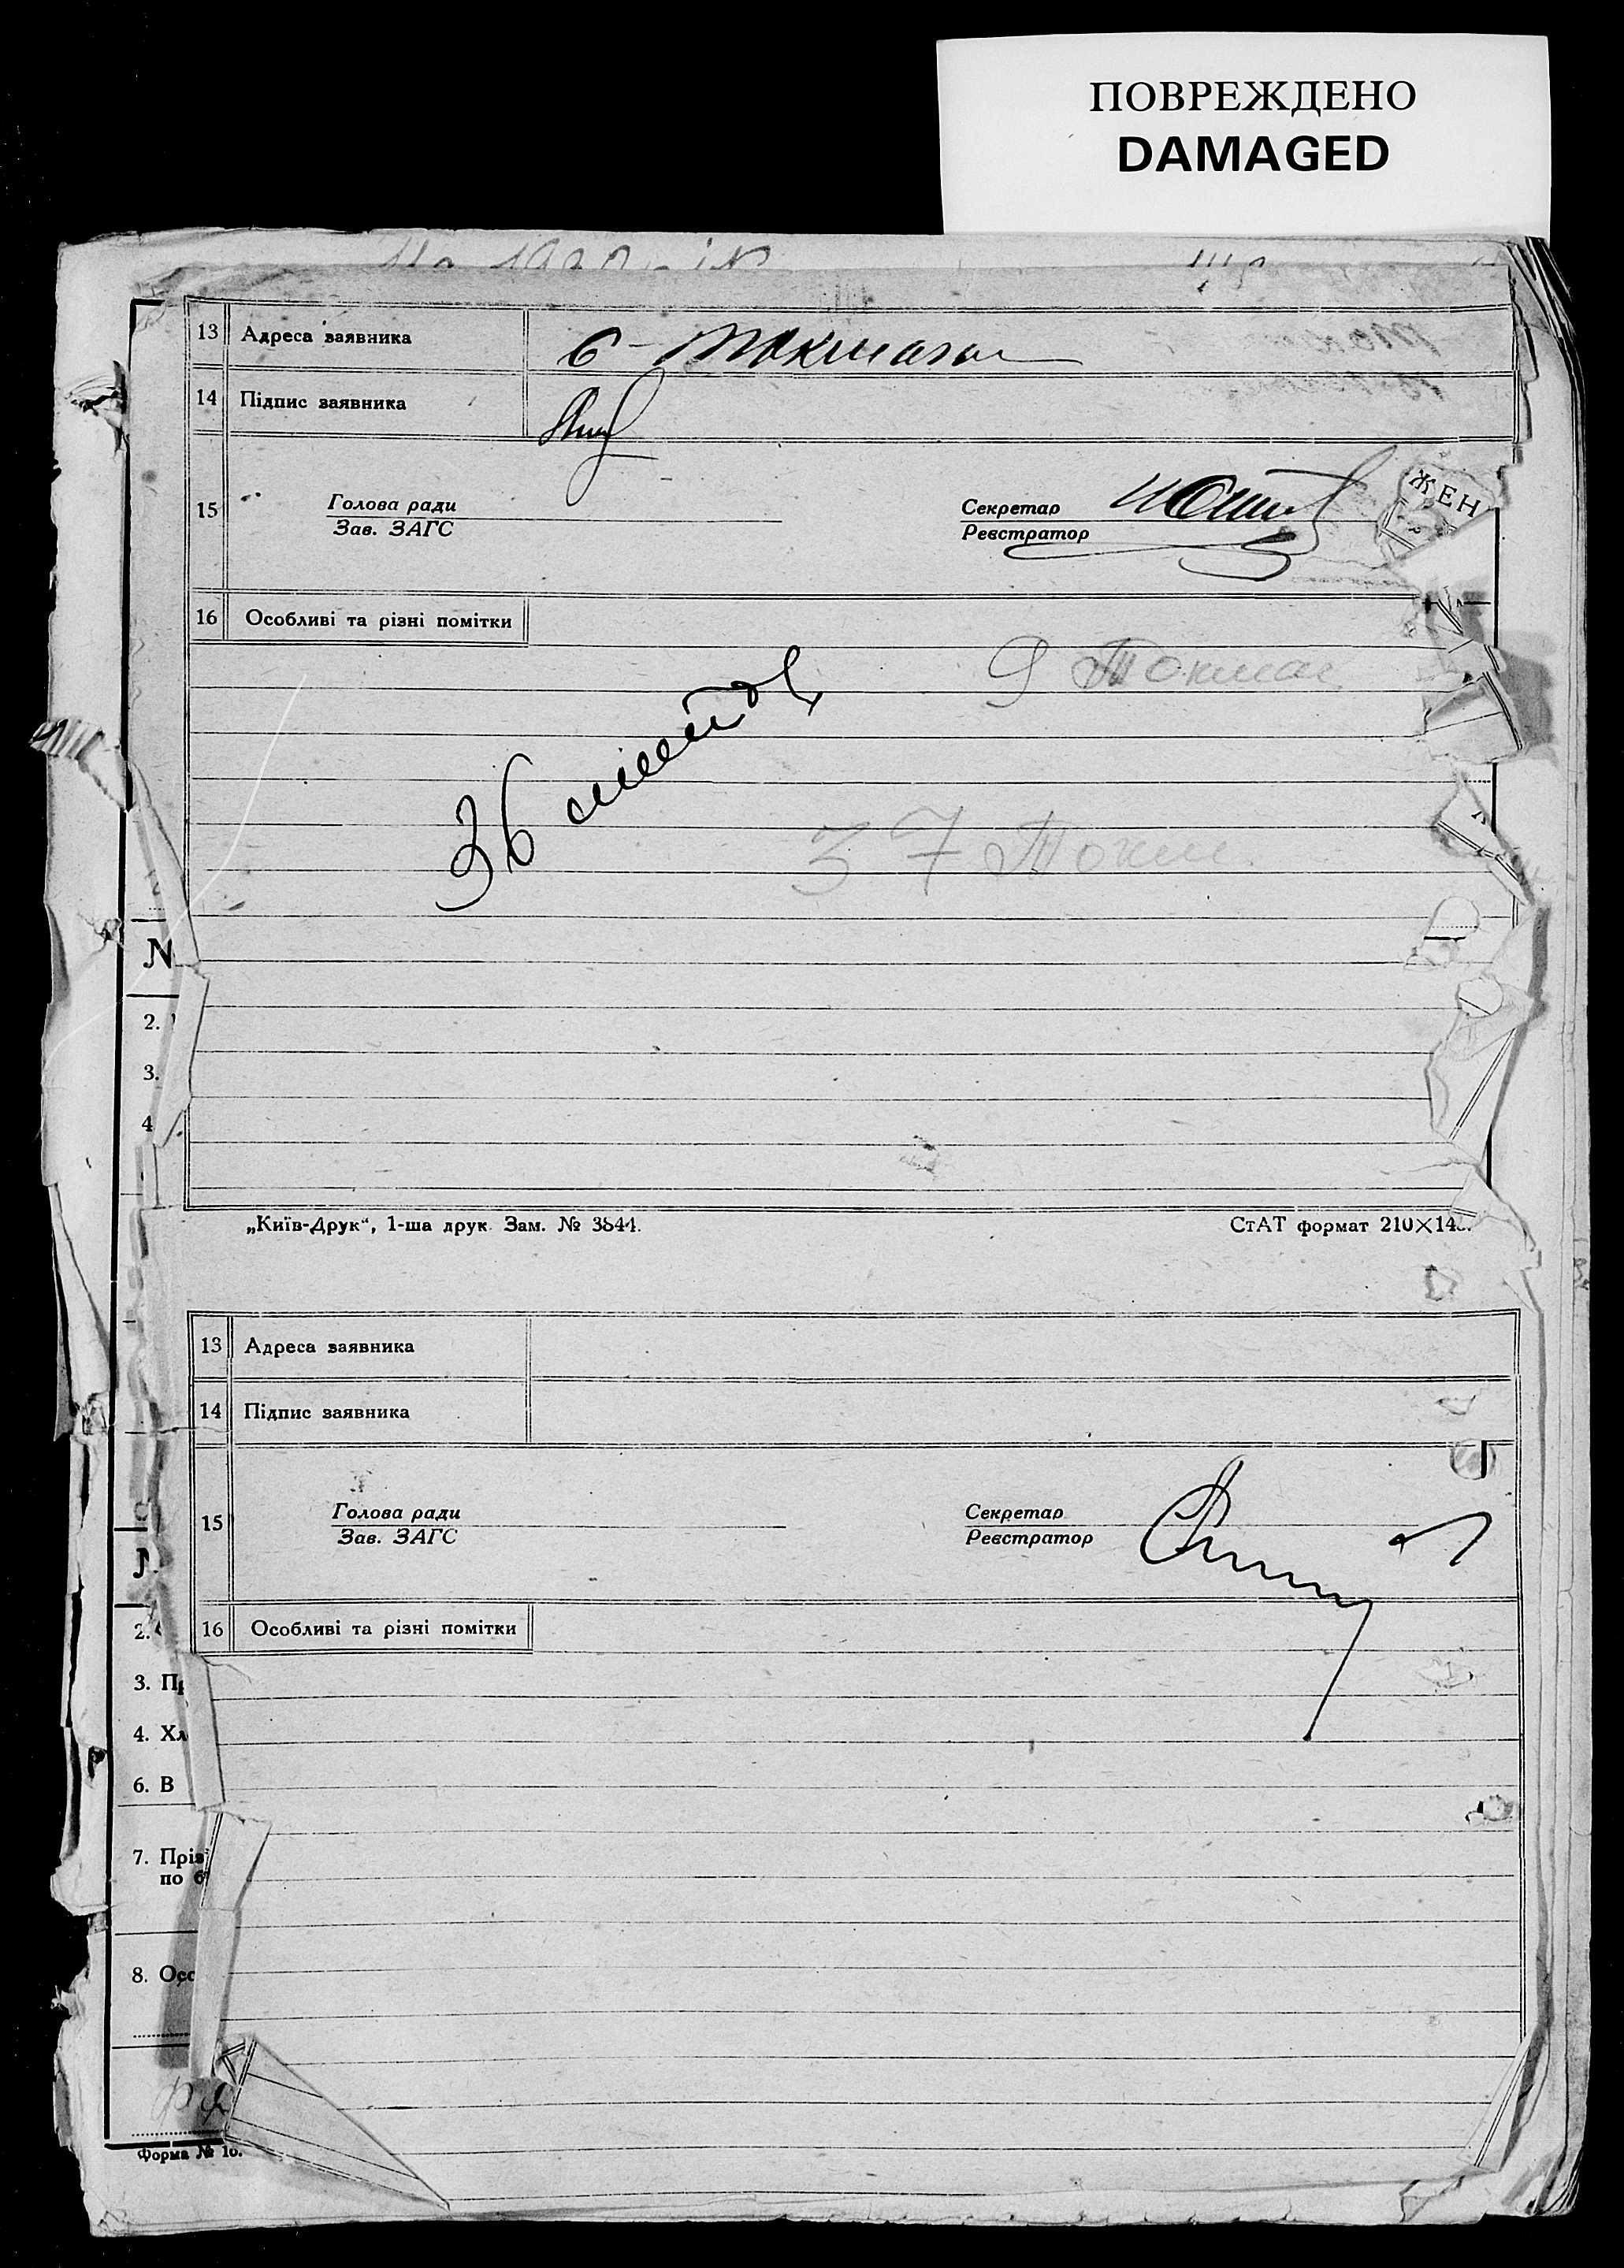 ПОВРЕЖДЕНО
DAMAGED
13 Адреса заявника
14 Підпис заявника
15 Голова ради Секретар
Зав. ЗАГС Реєстратор
ЖЕН
16 Особливі та різні помітки
9 Токмак
36
37 Токм
N
2.
3.
4
„Київ-Друк“, 1-ша друк. Зам. № 3844. СтАТ формат 210×148.
13 Адреса заявника
14 Підпис заявника
15 Голова ради Секретар
Зав. ЗАГС Реєстратор
2. 16 Особливі та різні помітки
3. Пр
4. Хл
6. В
7. Пріз
по б
8. Осо
Форма № 10.